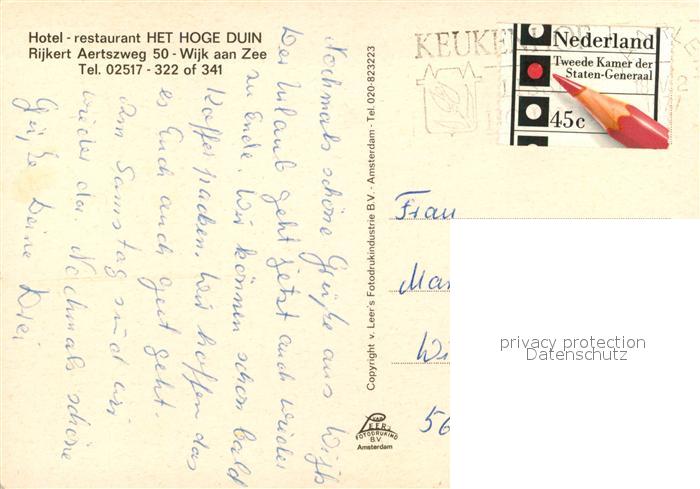 Hotel - restaurant HET HOGE DUIN
Rijkert Aertszweg 50 - Wijk aan Zee
Tel. 02517 - 322 of 341
Nochmals schöne Grüße aus Wijk
Der Urlaub geht jetzt auch wieder
zu Ende. Wir können schon bald
Koffer packen. Wir hoffen das
es Euch auch gut geht.
Am Samstag sind wir
wieder da. Nochmals schöne
Grüße Deine Drei
Copyright v. Leer's Fotodrukindustrie B.V. - Amsterdam - Tel. 020-823223
VAN
LEER's
FOTODRUKIND
B.V.
Amsterdam
KEUKENHOF
Nederland
Tweede Kamer der
Staten-Generaal
45c
Frau
Mar
Wi
56
privacy protection
Datenschutz